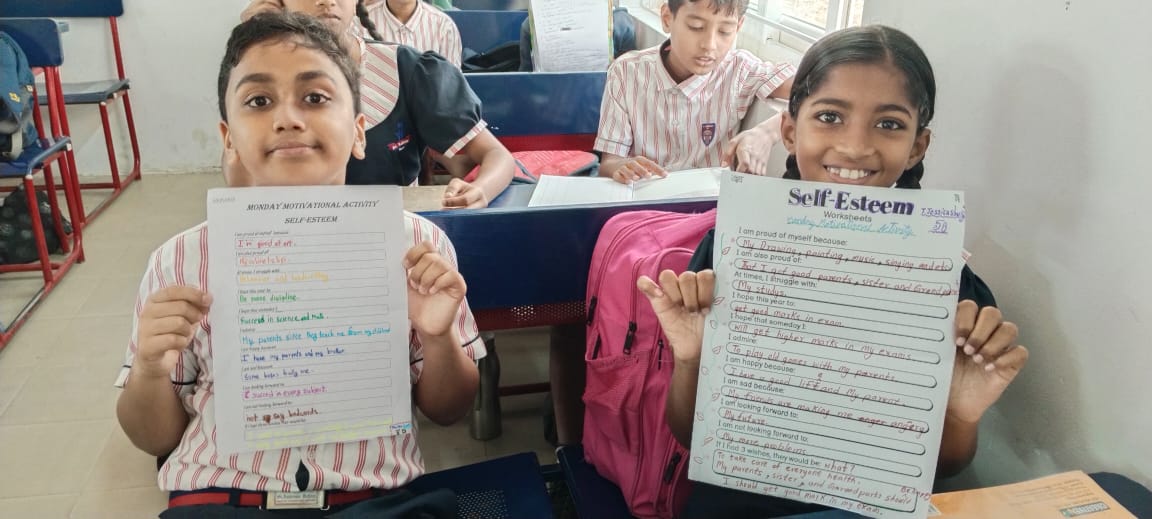 MONDAY MOTIVATIONAL ACTIVITY
SELF-ESTEEM
I am proud of myself because:
I'm good at art.
I am also proud of:
At times, I struggle with:
Behaviour and
I hope this year to:
Be more discipline.
I hope that someday I:
Succeed in science and Math.
My parents since they teach me from my
I am happy because:
I have my parents and my brother.
I am sad because:
Some boys bully me.
I am looking forward to:
succeed in every subject
I am not looking forward to:
not say badwords.
Self-Esteem
Worksheets
Monday Motivational Activity
5D
I am proud of myself because:
My Drawing, painting, music, singing and etc
I am also proud of:
That I got good parents, sister and Grand
At times, I struggle with:
My studys
I hope this year to:
get good marks in exam.
I hope that someday I:
will get higher marks in my exams.
I admire:
To play old games with my parents.
I am happy because:
I have a good life and my parent
I am sad because:
My friends are making me anger
I am looking forward to:
My future.
I am not looking forward to:
My more problems
If I had 3 wishes, they would be: what?
To take care of everyone health.
My parents, sister, and Grandparts should
I should get good mark in my exam.